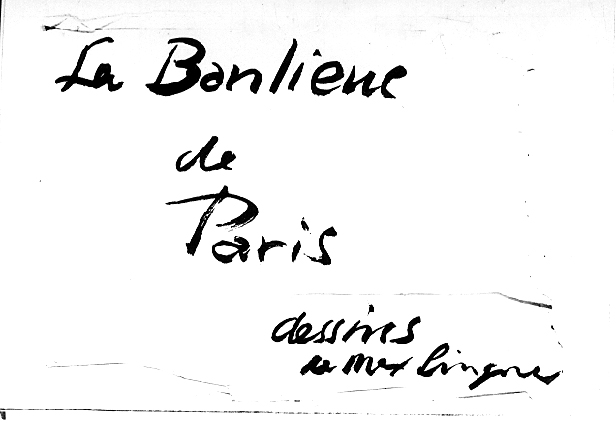 La Banlieue
de
Paris
dessins
de Max Lingner